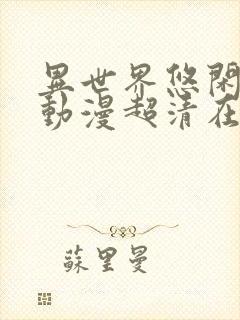 異世界悠閑
動漫超清在
蘇里曼